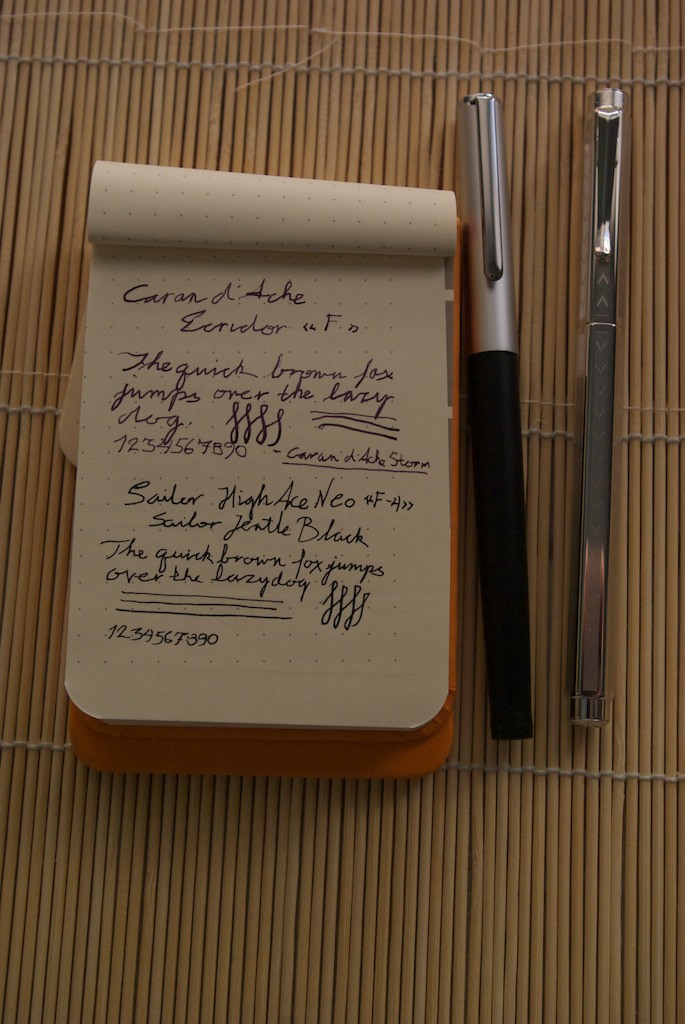 Caran d'Ache
Ecridor «F»
The quick brown fox
jumps over the lazy
dog.
1234567890 - Caran d'Ache Storm
Sailor HighAce Neo «F-4»
Sailor Jentle Black
The quick brown fox jumps
over the lazy dog
1234567890